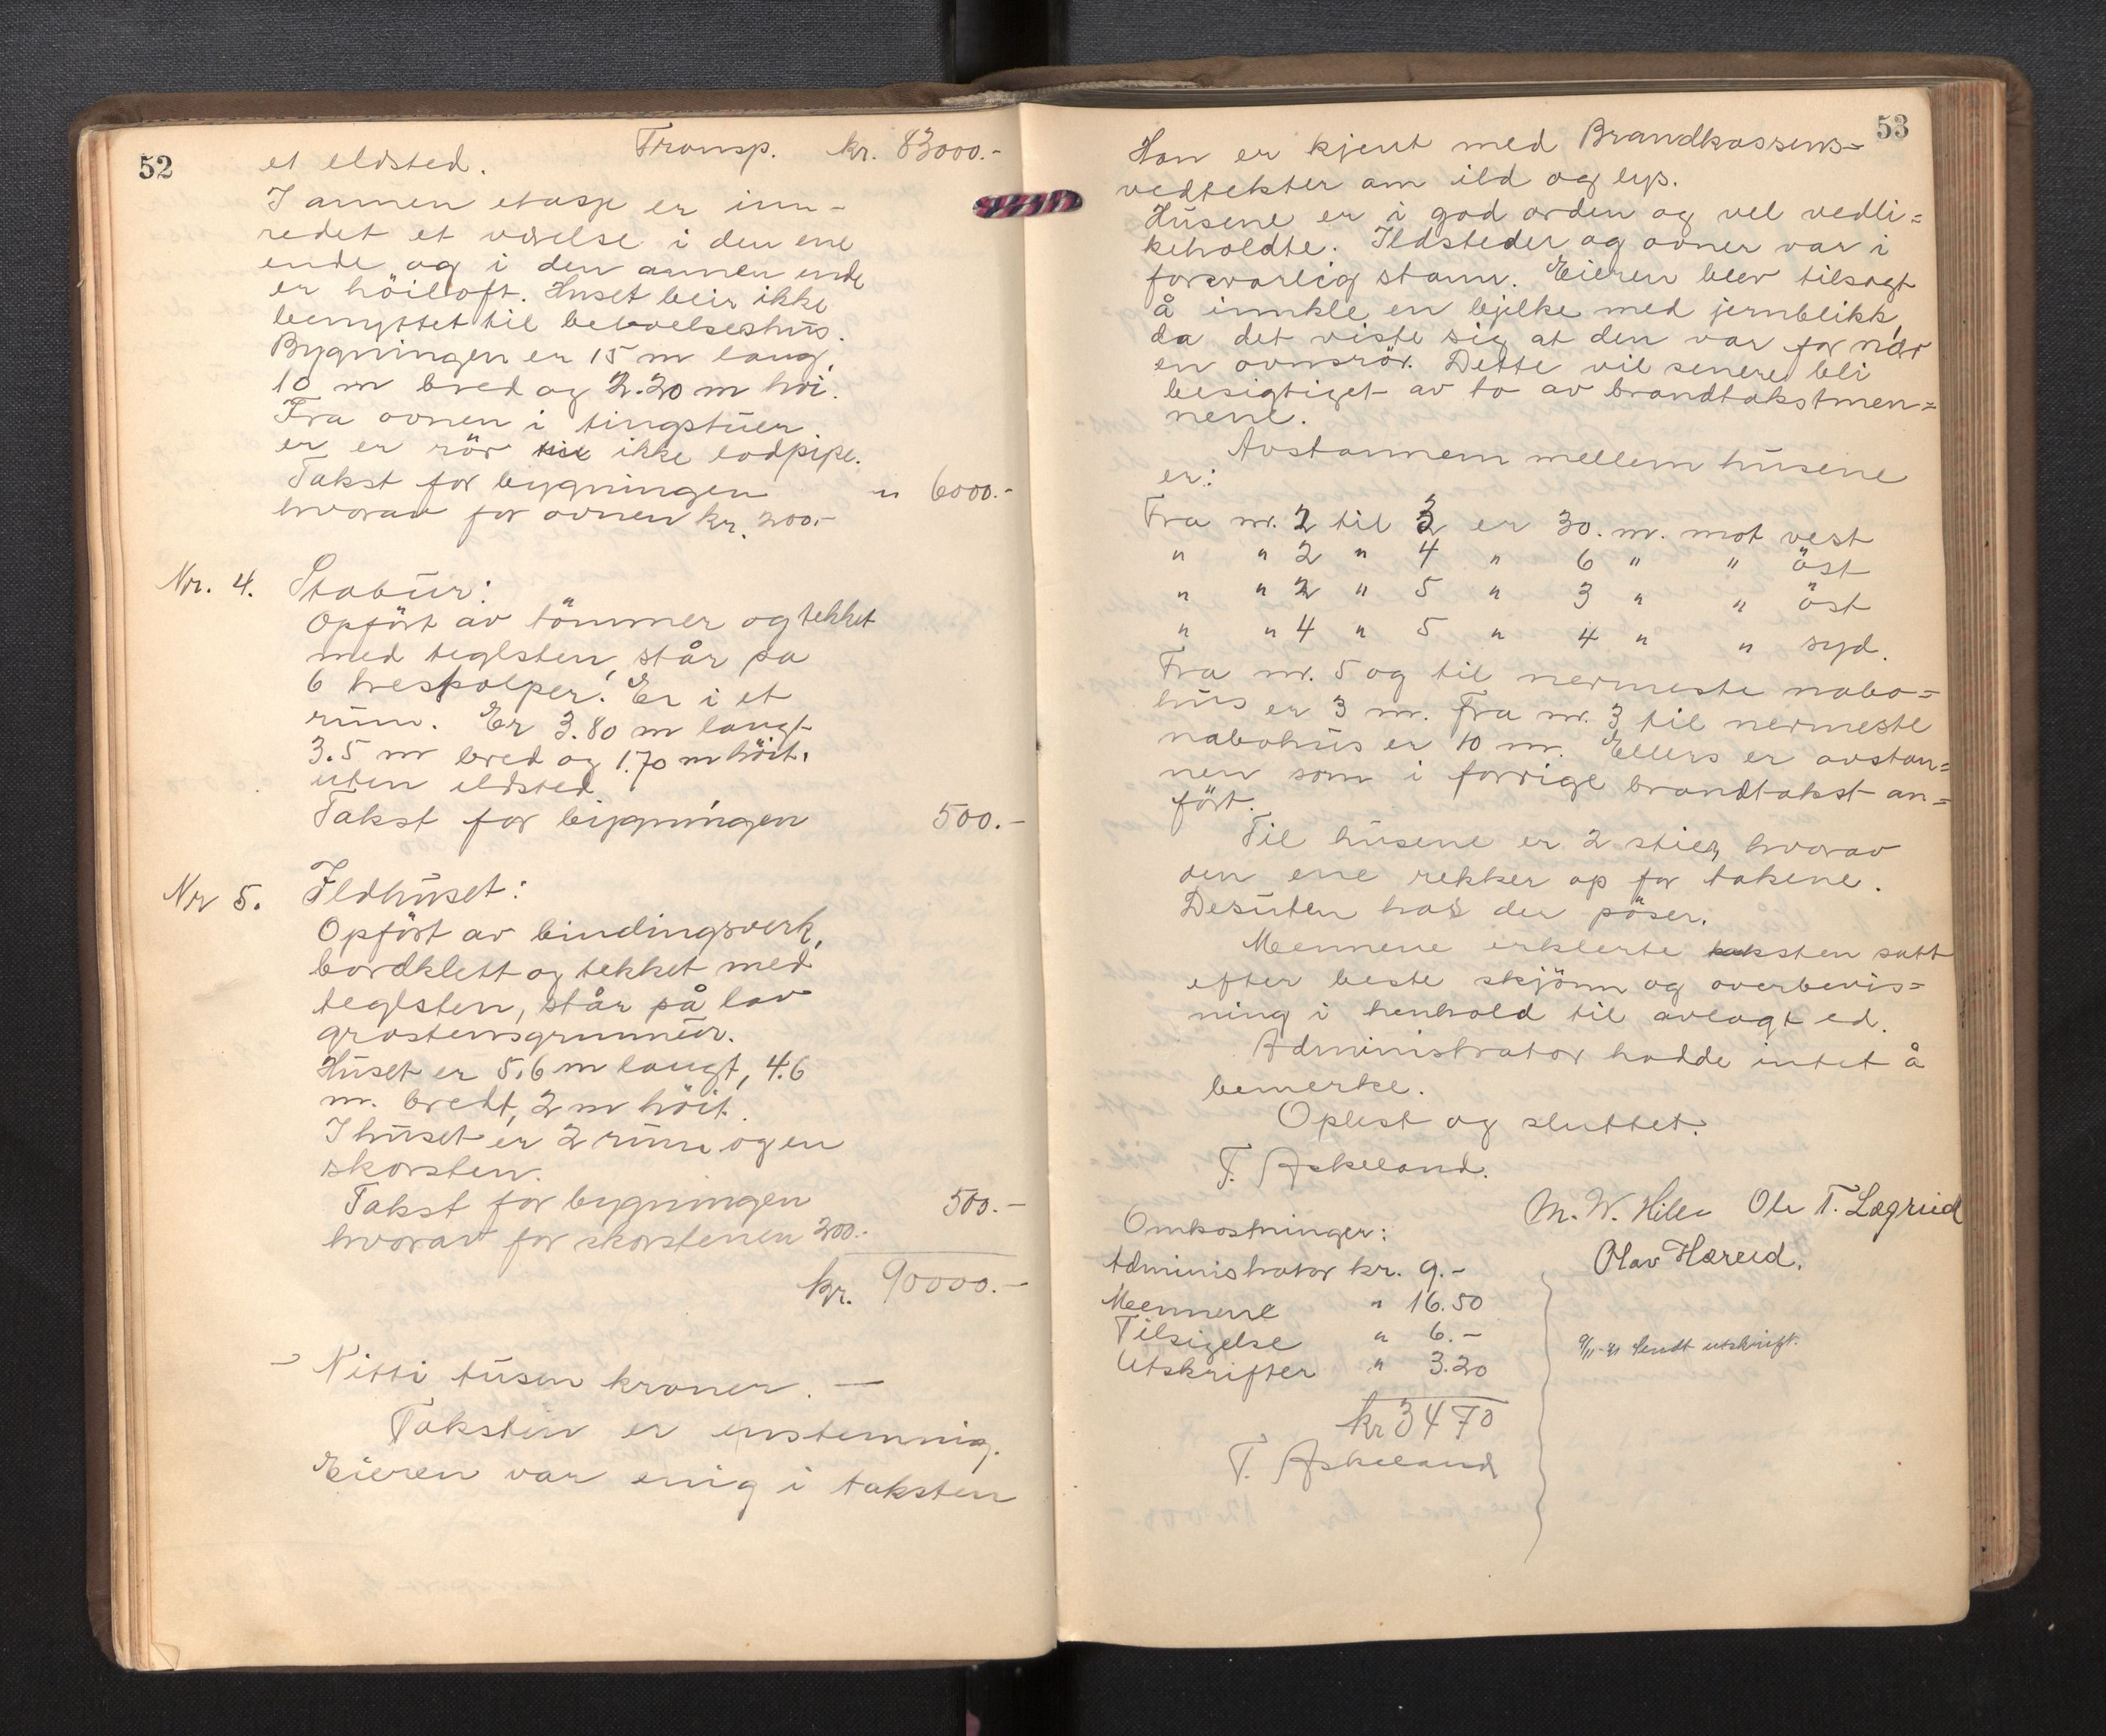 52
et eldsted. Transp. kr. 83000.-
I annen etasje er inn-
redet et værelse i den ene
ende og i den annen ende
er höiloft. Huset beir ikke
benyttet til beboelseshus.
Bygningen er 15 m lang,
10 m bred og 2.20 m höi.
Fra ovnen i tingstuen
er er rör ikke lodpipe.
Takst for bygningen " 6000.-
hvorav for ovnen kr. 200.-
Nr. 4. Stabur:
Opfört av tömmer og tekket
med teglsten, står på
6 Er i et
rum. Er 3.80 m langt
3.5 m bred og 1.70 m höit.
uten eldsted.
Takst for bygningen 500.-
Nr 5. Ildhuset:
Opfört av bindingsverk,
bordklett og tekket med
teglsten, står på lav
gråstensgrunnur.
Huset er 5.6 m langt, 4.6
m. bredt, 2 m höit.
I huset er 2 rum og en
skorsten.
Takst for bygningen 500.-
hvorav for skorstenen 200.-
kr. 90000.-
Nitti tusen kroner. —
Taksten er enstemmig.
Eieren var enig i taksten
53
Han er kjent med Brandkassens=
vedtekter om ild og lys.
Husene er i god orden og vel vedli=
keholdte. Ildsteder og ovner var i
forsvarlig stann. Eieren blev tilsagt
å innkle en bjelke med jernblikk,
da det viste sig at den var for nær
en ovnsrör. Dette vil senere bli
besigtiget av to av brandtakstmen=
nene.
Avstannem mellem husene
er:
Fra nr. 2 til 3 er 30. m. mot vest
" " 2 " 4 " 6 " " öst
" " 2 " 5 " 3 " " öst
" " 4 " 5 " 4 " " syd.
Fra nr. 5 og til nermeste nabo=
hus er 3 m. Fra nr. 3 til nermeste
nabohus er 10 m. Ellers er avstan=
nen som i forrige brandtakst an=
fört.
Til husene er 2 stier, hvorav
den ene rekker op for takene.
Desuten has der pöser.
Mennene erklerte taksten satt
efter beste skjönn og overbevis=
ning i henhold til avlagt ed.
Administrator hadde intet å
bemerke.
Oplest og sluttet.
T. Askeland.
M. W. Hille Ole T. Lægreid
Olav Hæreid.
Omkostninger:
Administrator kr. 9.-
Mennene " 16.50
Tilsigelse " 6.-
Utskrifter " 3.20
kr 34 70
T. Askeland
9/11-41 Sendt utskrift.